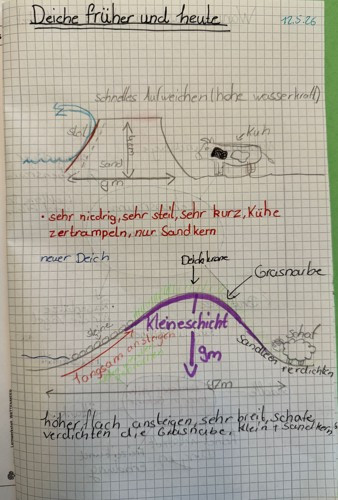 Deiche früher und heute
12.5.26
schnelles Aufweichen (hohe Wasserkraft)
steil
4m
Kuh
Sand
9m
• sehr niedrig, sehr steil, sehr kurz, Kühe
zertrampeln, nur Sandkern
neuer Deich
Deichkrone
Grasnarbe
Steine
Kleineschicht
langsam ansteigen
9m
Schaf
Sandkern verdichten
höher, flach ansteigen, sehr breit, Schafe
verdichten die Grasnarbe, Klein + Sandkern